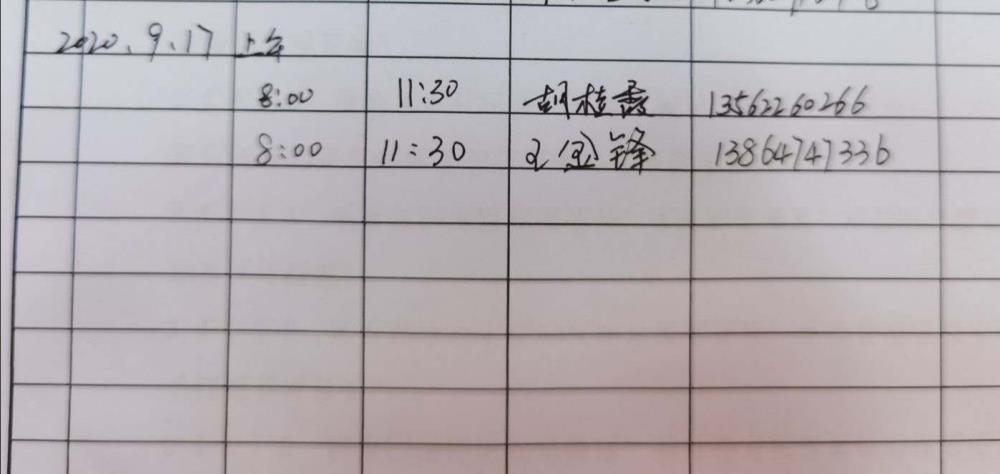 2020.9.17 上午
8:00 11:30 胡桂香 13562260266
8:00 11:30 王金锋 13864747336